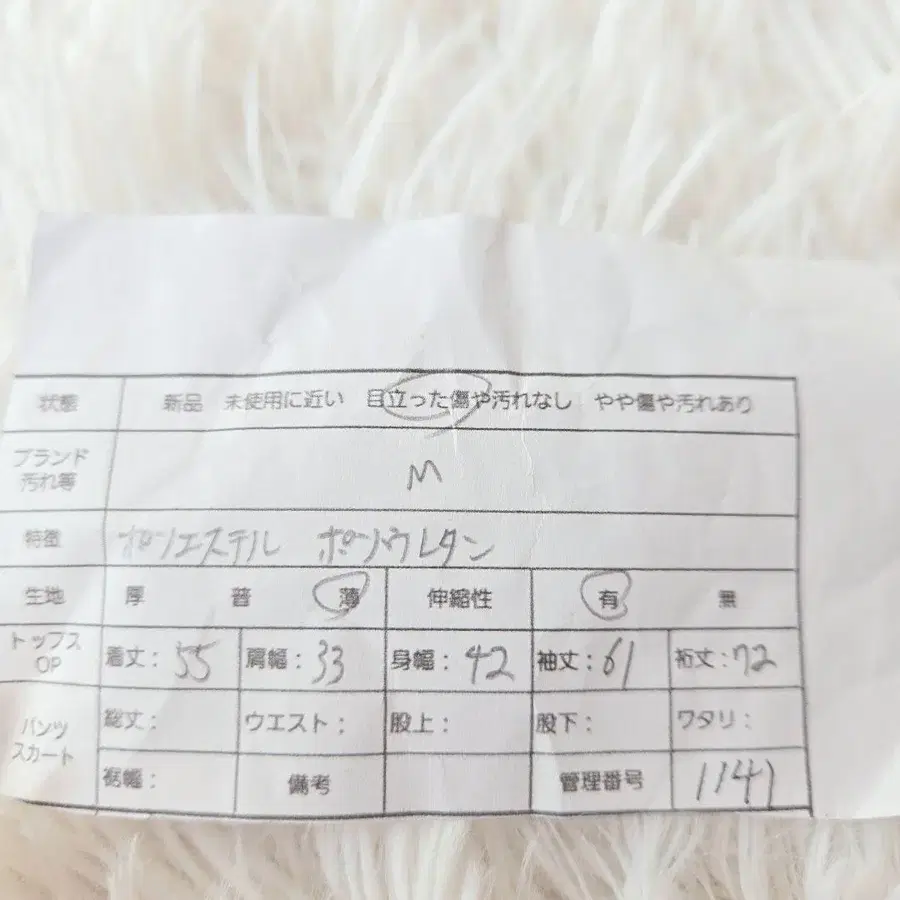 状態 新品 未使用に近い 目立った傷や汚れなし やや傷や汚れあり
ブランド
汚れ等
M
特徴 ポリエステル ポリウレタン
生地 厚 普 薄 伸縮性 有 無
トップス
OP
着丈: 55 肩幅: 33 身幅: 42 袖丈: 61 裄丈: 72
パンツ
スカート
総丈: ウエスト: 股上: 股下: ワタリ:
裾幅: 備考 管理番号 1141